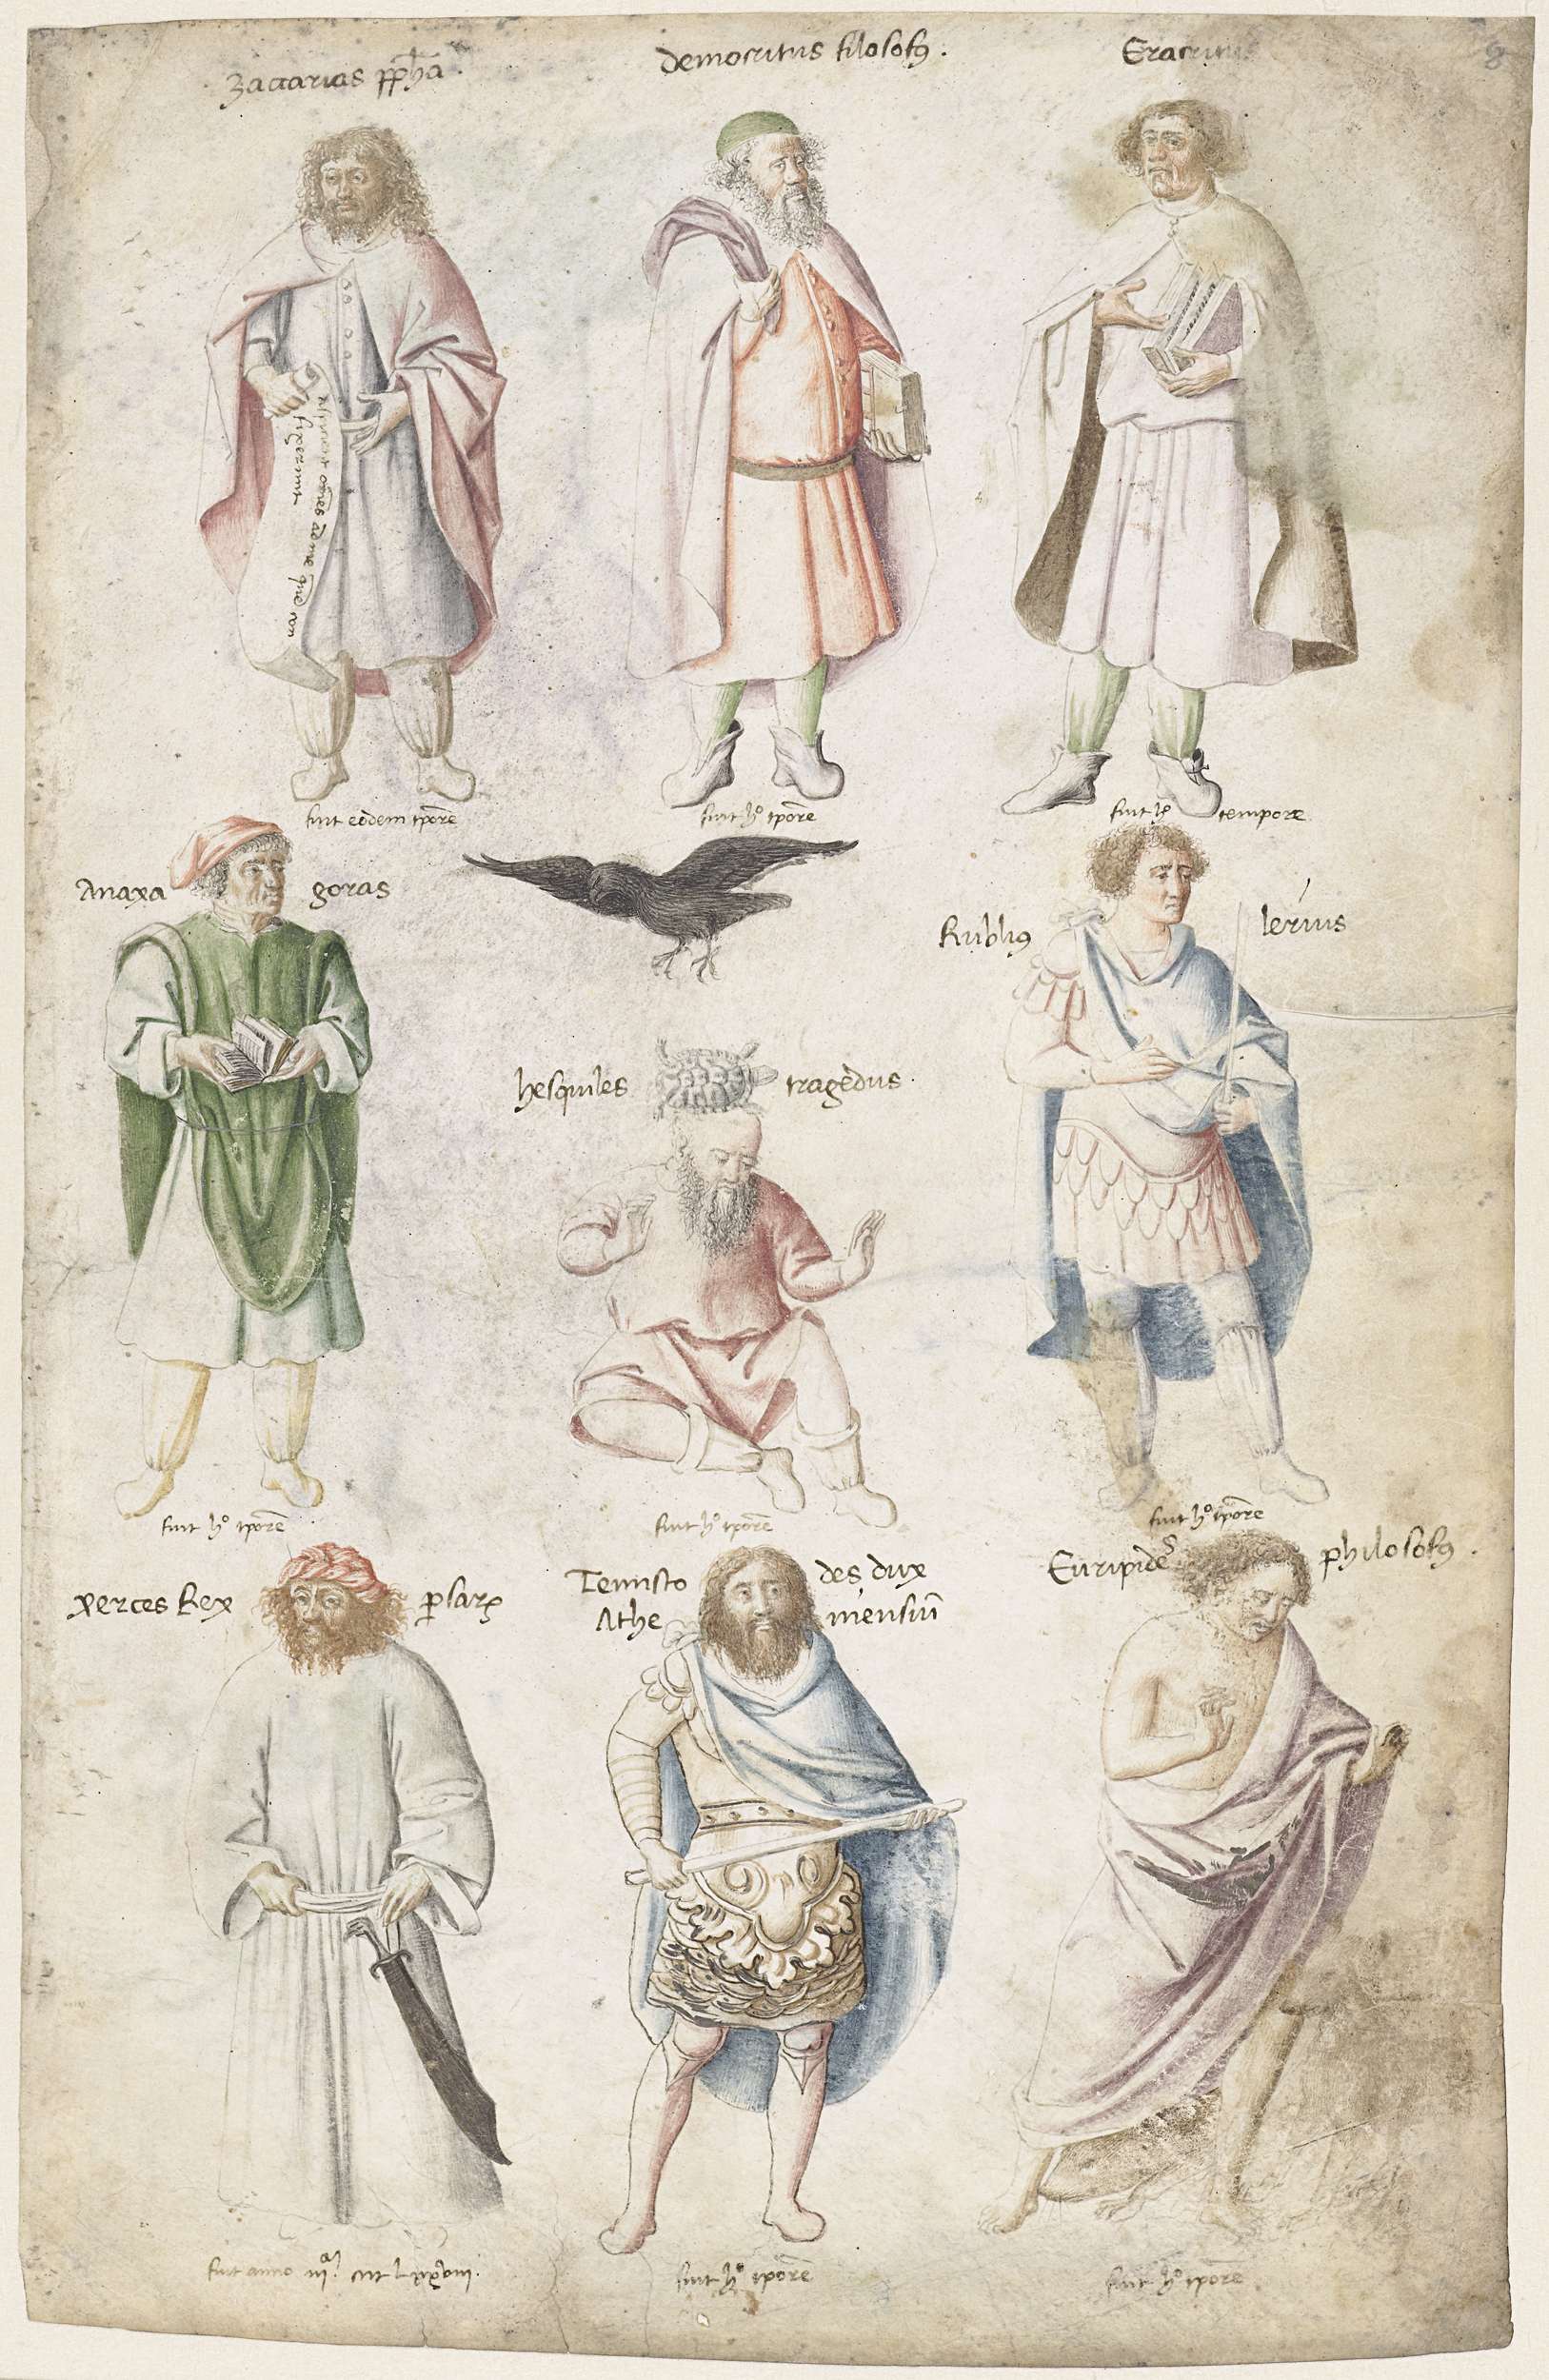 Zaccarias ꝓph̄a.
Democritus filosofꝰ.
Eracritus
8
fuit eodem tp̄ore
fuit hº tp̄ore
fuit hº tempore
Anaxa goras
Publiꝰ lerius
hesquiles tragedus.
fuit hº tp̄ore
fuit hº tp̄ore
fuit hº tp̄ore
Xerces Rex ꝑsarꝝ
Temisto des dux
Athe niensiū
Euripides philosofꝰ.
fuit anno
fuit hº tp̄ore
fuit hº tp̄ore